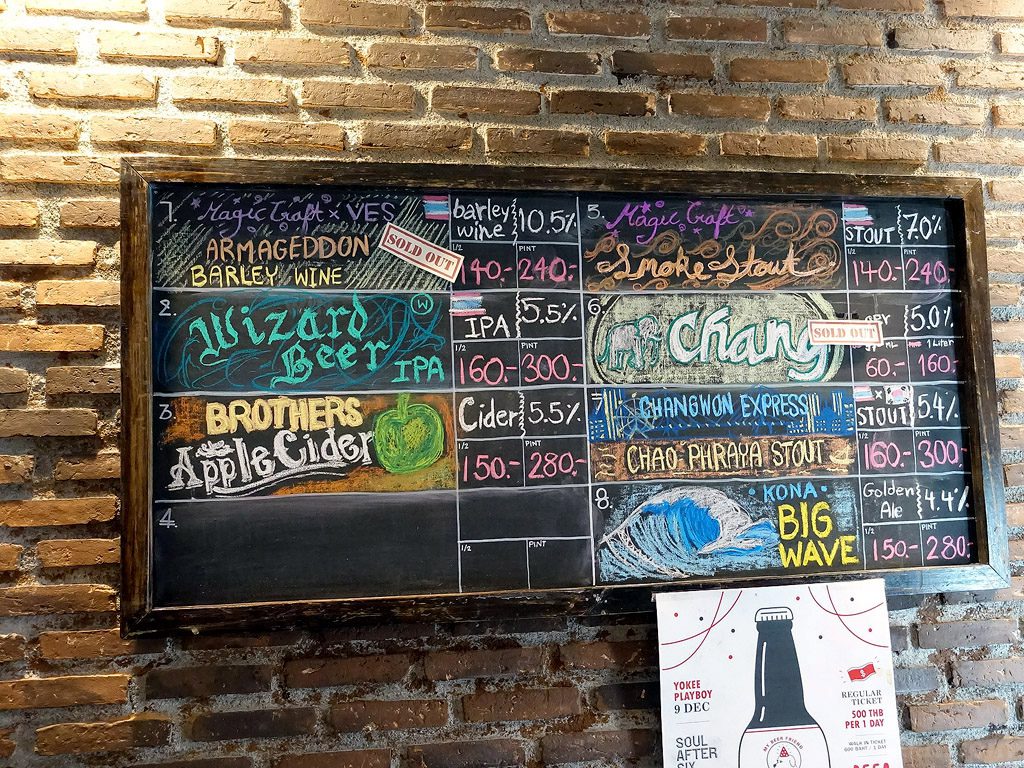 1. Magic Craft x VES
ARMAGEDDON
BARLEY WINE
SOLD OUT
barley wine 10.5%
1/2 140.- PINT 240.-
2. Wizard Beer IPA
W
IPA 5.5%
1/2 160.- PINT 300.-
3. BROTHERS
Apple Cider
Cider 5.5%
1/2 150.- PINT 280.-
4.
1/2 PINT
5. Magic Craft
Smoke Stout
STOUT 7.0%
1/2 140.- PINT 240.-
6. Chang
SOLD OUT
5.0%
60.- 1 Liter 160.-
7. CHANGWON EXPRESS
CHAO PHRAYA STOUT
x
STOUT 5.4%
1/2 160.- PINT 300.-
8. KONA
BIG
WAVE
Golden Ale 4.4%
1/2 150.- PINT 280.-
YOKEE
PLAYBOY
9 DEC
SOUL
AFTER
SIX
MY BEER FRIEND
REGULAR
TICKET
500 THB
PER 1 DAY
WALK IN TICKET
600 BAHT / 1 DAY